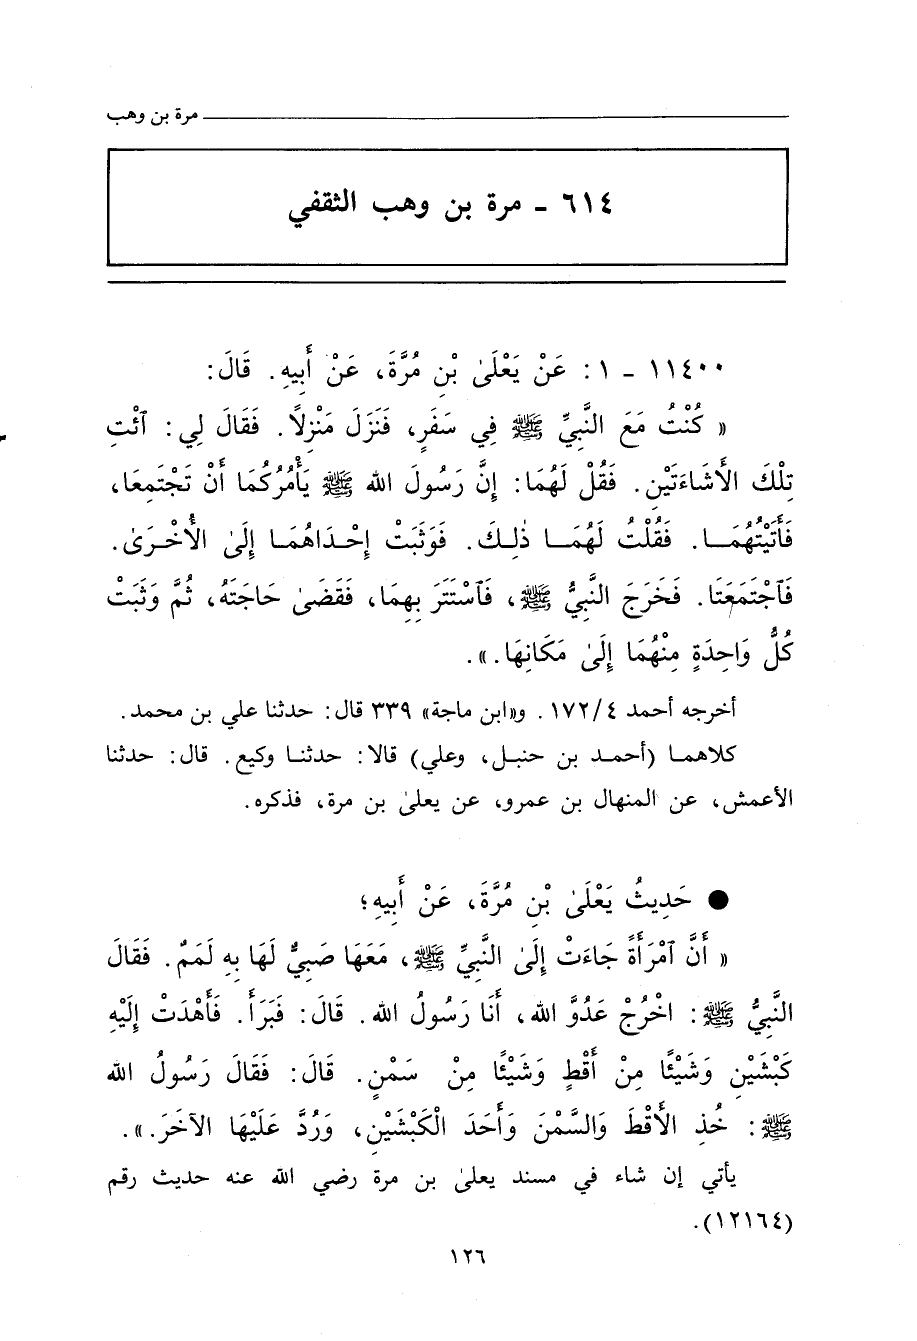 مرة بن وهب
٦١٤ - مرة بن وهب الثقفي
١١٤٠٠ - ١ : عَنْ يَعْلَىٰ بْنِ مُرَّةَ، عَنْ أَبِيهِ. قَالَ:
« كُنْتُ مَعَ النَّبِيِّ ﷺ فِي سَفَرٍ، فَنَزَلَ مَنْزِلاً. فَقَالَ لِي: ٱئْتِ
تِلْكَ الأَشَاءَتَيْنِ. فَقُلْ لَهُمَا: إِنَّ رَسُولَ الله ﷺ يَأْمُرُكُمَا أَنْ تَجْتَمِعَا،
فَأَتَيْتُهُمَــا. فَقُلْتُ لَهُمَــا ذٰلِـكَ. فَوَثَبَتْ إِحْـدَاهُمَـا إِلَىٰ الأُخْـرَىٰ.
فَٱجْتَمَعَتَا. فَخَرَجَ النَّبِيُّ ﷺ، فَٱسْتَتَرَ بِهِمَا، فَقَضَىٰ حَاجَتَهُ، ثُمَّ وَثَبَتْ
كُلُّ وَاحِدَةٍ مِنْهُمَا إِلَىٰ مَكَانِهَا.».
أخرجه أحمد ٤/١٧٢. و«ابن ماجة» ٣٣٩ قال: حدثنا علي بن محمد.
كلاهمـا (أحمـد بن حنبـل، وعلي) قالا: حدثنـا وكيع. قال: حدثنا
الأعمش، عن المنهال بن عمرو، عن يعلىٰ بن مرة، فذكره.
● حَدِيثُ يَعْلَىٰ بْنِ مُرَّةَ، عَنْ أَبِيهِ؛
« أَنَّ ٱمْرَأَةً جَاءَتْ إِلَىٰ النَّبِيِّ ﷺ، مَعَهَا صَبِيٌّ لَهَا بِهِ لَمَمٌ. فَقَالَ
النَّبِيُّ ﷺ: اخْرُجْ عَدُوَّ الله، أَنَا رَسُولُ الله. قَالَ: فَبَرَأَ. فَأَهْدَتْ إِلَيْهِ
كَبْشَيْنِ وَشَيْئًا مِنْ أَقْطٍ وَشَيْئًا مِنْ سَمْنٍ. قَالَ: فَقَالَ رَسُولُ الله
ﷺ: خُذِ الأَقْطَ وَالسَّمْنَ وَأَحَدَ الْكَبْشَيْنِ، وَرُدَّ عَلَيْهَا الآخَرَ.».
يأتي إن شاء في مسند يعلىٰ بن مرة رضي الله عنه حديث رقم
(١٢١٦٤).
١٢٦